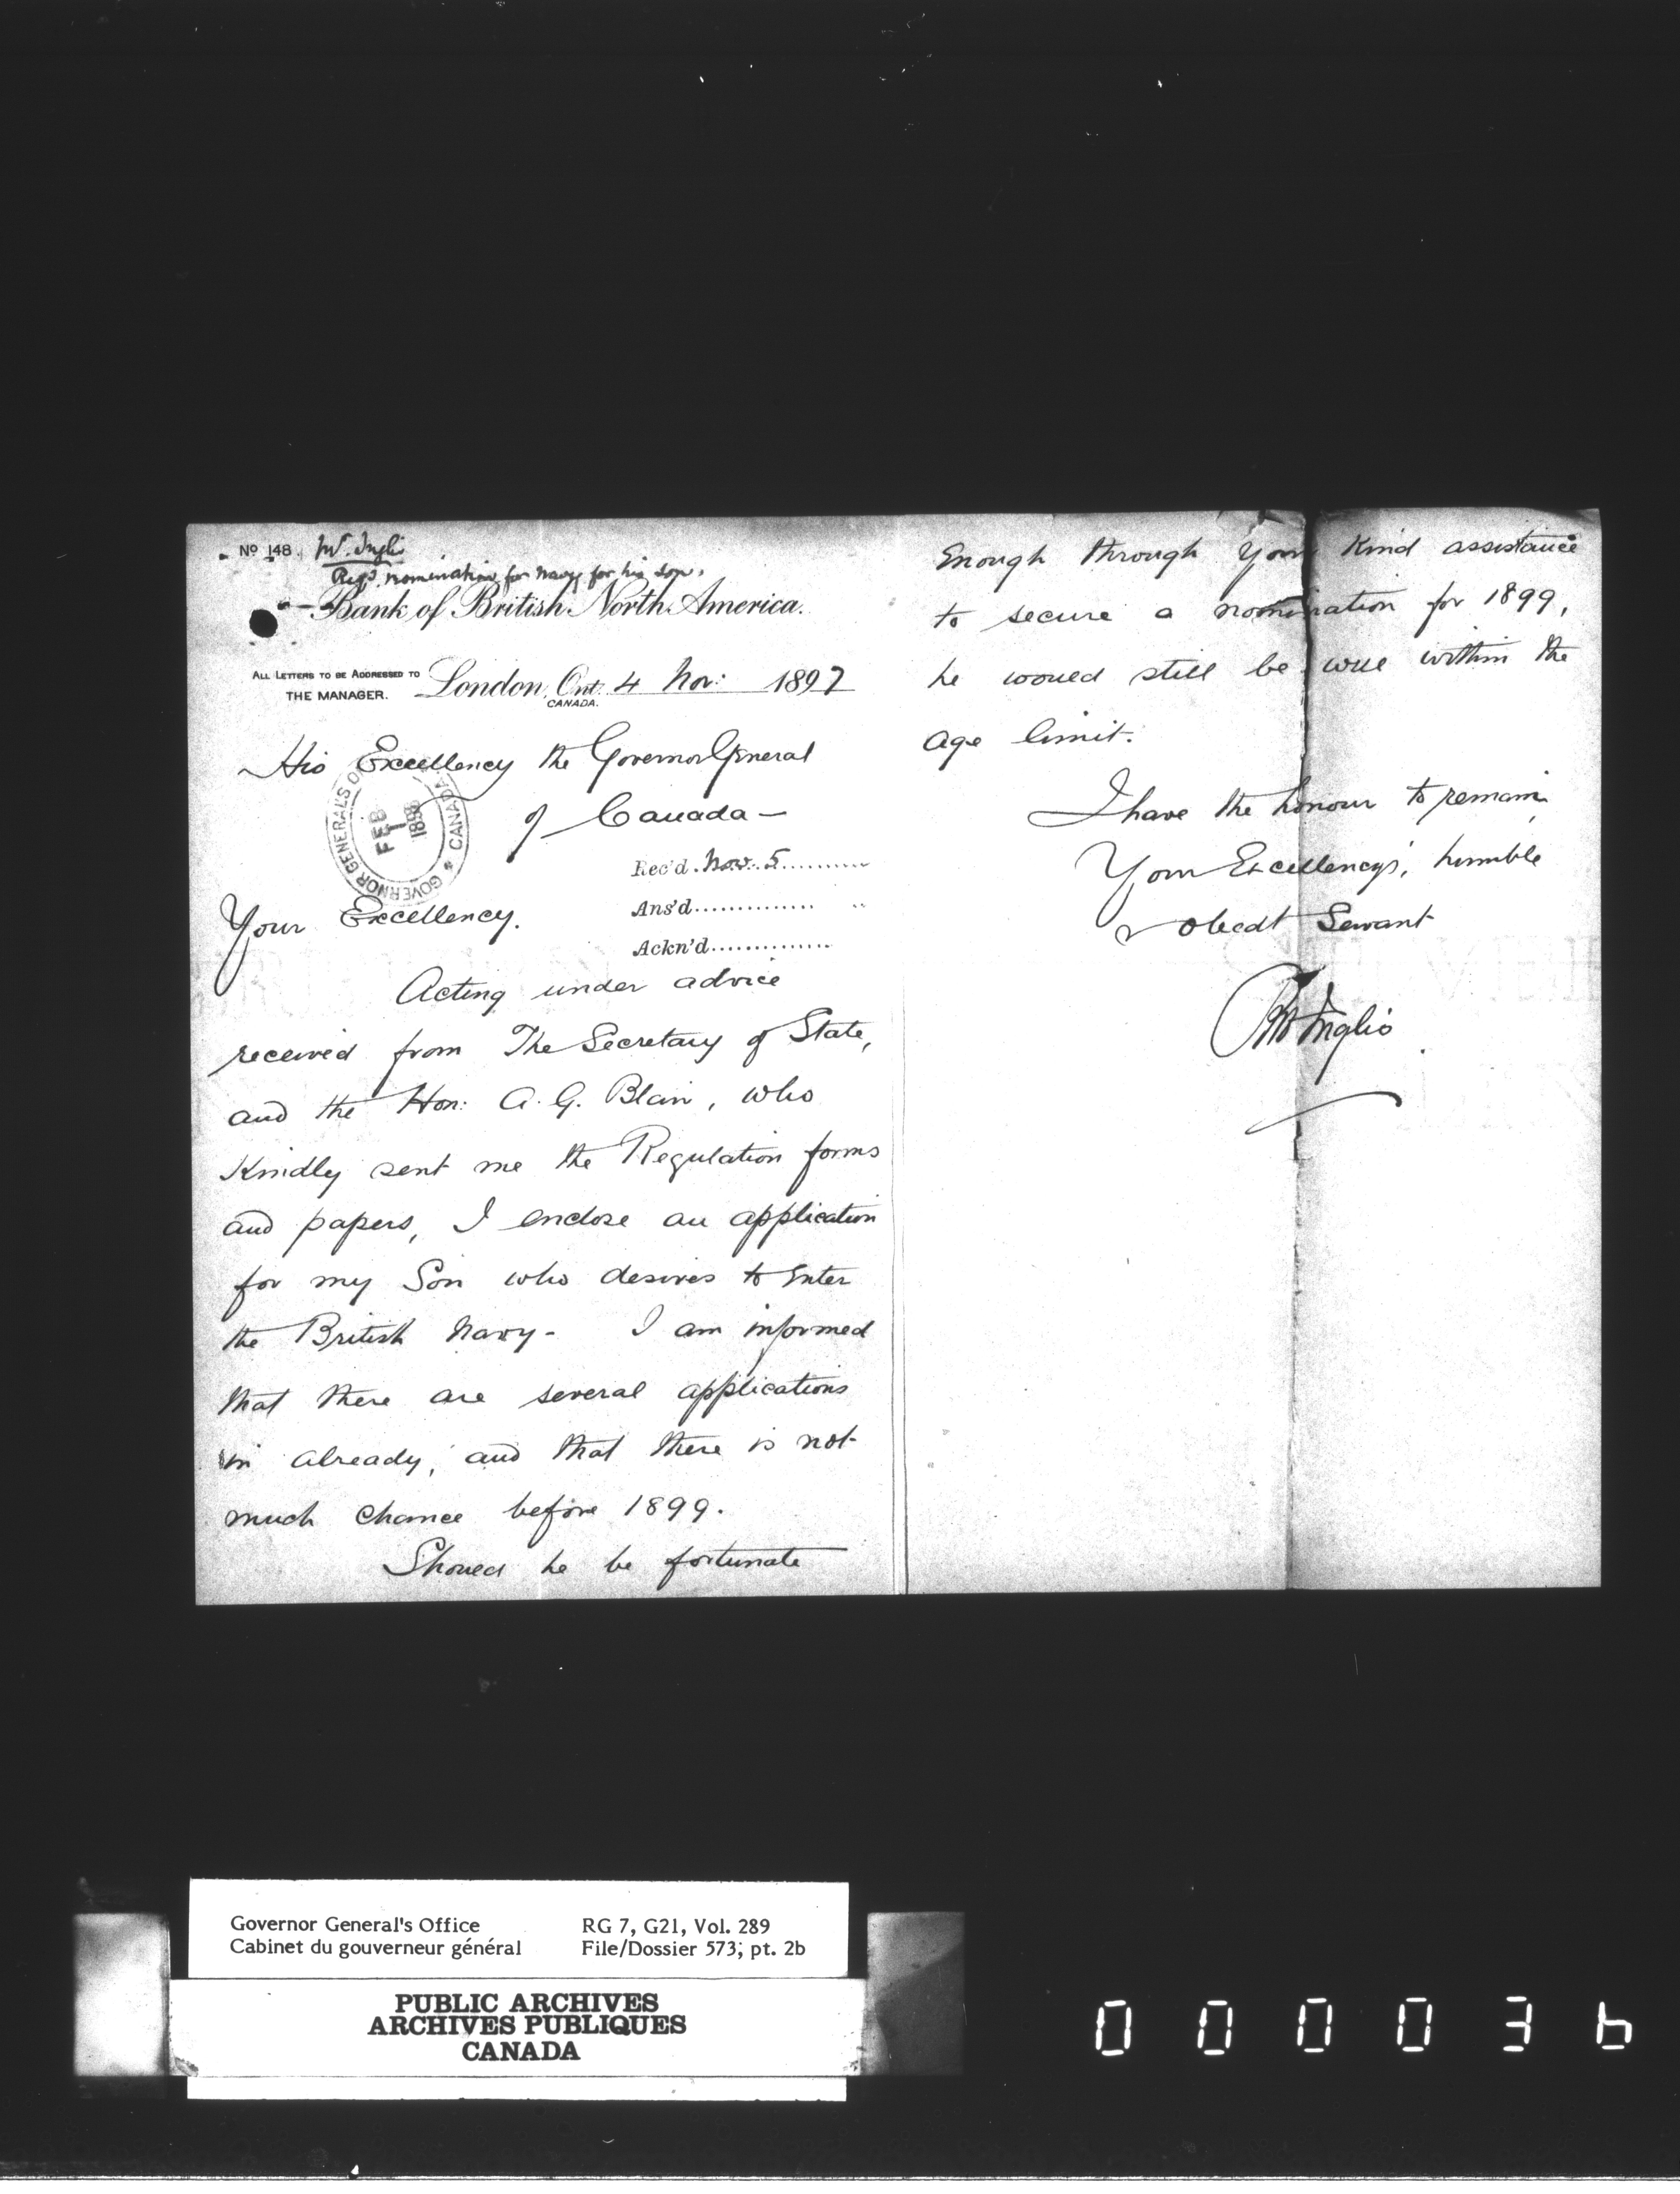 No 148. Mr. Inglis
Reqs. nomination for Navy for his son.
Bank of British North America.
ALL LETTERS TO BE ADDRESSED TO
THE MANAGER.
London, Ont. 4 Nov: 1897
CANADA.
His Excellency the Governor General
of Canada —
GOVERNOR GENERAL'S
CANADA
FEB
1
1898
Rec'd. Nov. 5
Ans'd
Ackn'd
Your Excellency.
Acting under advice
received from The Secretary of State,
and the Hon: A. G. Blair, who
Kindly sent me the Regulation forms
and papers, I enclose an application
for my Son who desires to Enter
the British Navy - I am informed
that there are several applications
in already, and that there is not
much chance before 1899.
Should he be fortunate
Enough through Your Kind assistance
to secure a nomination for 1899,
he would still be well within the
age limit.
I have the honour to remain,
Your Excellencys' humble
& obedt Servant
Inglis
Governor General's Office
Cabinet du gouverneur général
RG 7, G21, Vol. 289
File/Dossier 573; pt. 2b
PUBLIC ARCHIVES
ARCHIVES PUBLIQUES
CANADA
0 0 0 0 3 6